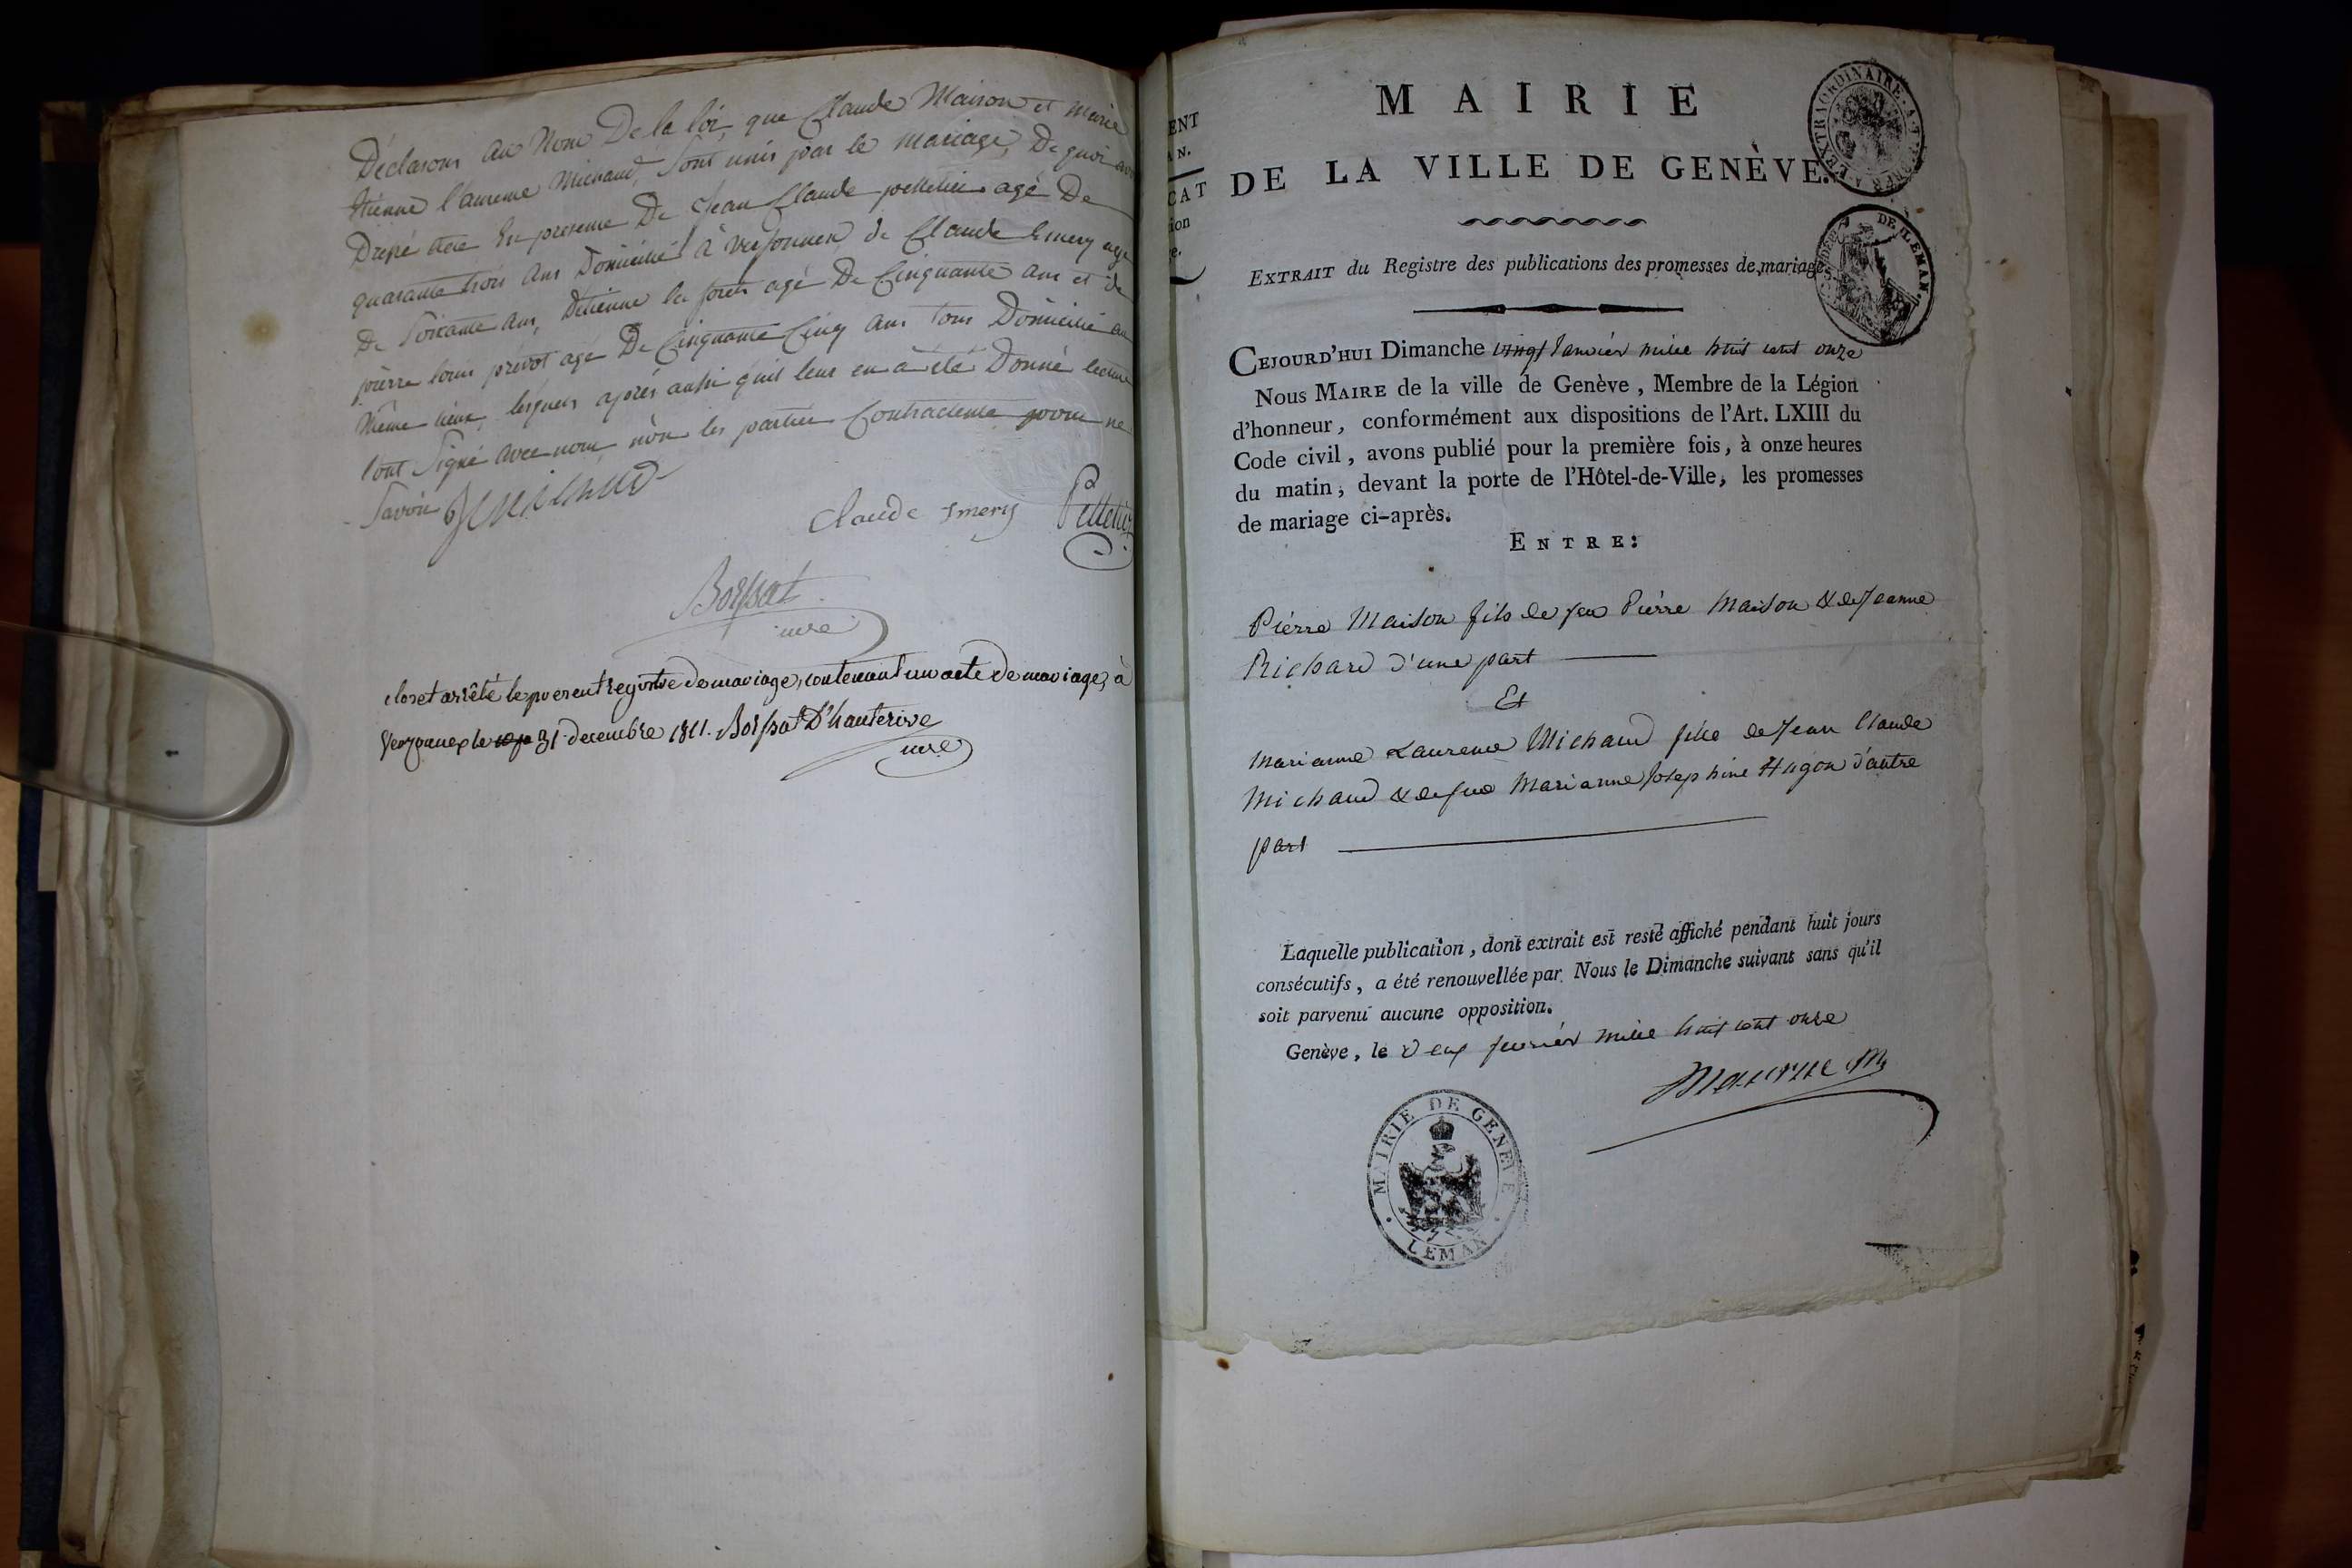 Déclarons au Nom De la loi, que Claude Maison et marie
étienne laurence Michaud, Sont unis par le mariage, De quoi avons
Dressé acte En presence De Jean Claude pelletier agé De
quarante trois ans Domicilié à versonnex de Claude Emery agé
De Soixante ans, Détienne la foret agé De Cinquante ans et de
pierre louis prevot agé De Cinquante Cinq ans tous Domicilié au
Même lieux, lesquels après aussi quil leur en à été Donné lecture
l'ont Signé avec nous, non les parties Contractente pour ne
Savoir
Claude Emery Pelletier
Boissat
mre
clos et arrêté le present registre de mariage, contenant un acte de mariage, à
Versonnex le 31 decembre 1811. Boissat D'hauterive
mre
ENT
AN.
CAT
ion
e.
MAIRIE
DE LA VILLE DE GENÈVE.
EXTRAORDINAIRE
DE LEMAN.
EXTRAIT du Registre des publications des promesses de mariage.
CEJOURD'HUI Dimanche vingt Janvier mille huit cent onze
Nous MAIRE de la ville de Genève, Membre de la Légion
d'honneur, conformément aux dispositions de l'Art. LXIII du
Code civil, avons publié pour la première fois, à onze heures
du matin, devant la porte de l'Hôtel-de-Ville, les promesses
de mariage ci-après.
ENTRE:
Pierre Maison fils de feu Pierre Maison & de Jeanne
Richard d'une part
Et
Marianne Laurence Michaud fille de Jean Claude
Michaud & de feue Marianne Josephine Hugon d'autre
part
Laquelle publication, dont extrait est resté affiché pendant huit jours
consécutifs, a été renouvellée par Nous le Dimanche suivant sans qu'il
soit parvenu aucune opposition.
Genève, le deux fevrier mille huit cent onze
Maurice M
MAIRIE DE GENEVE
LEMAN